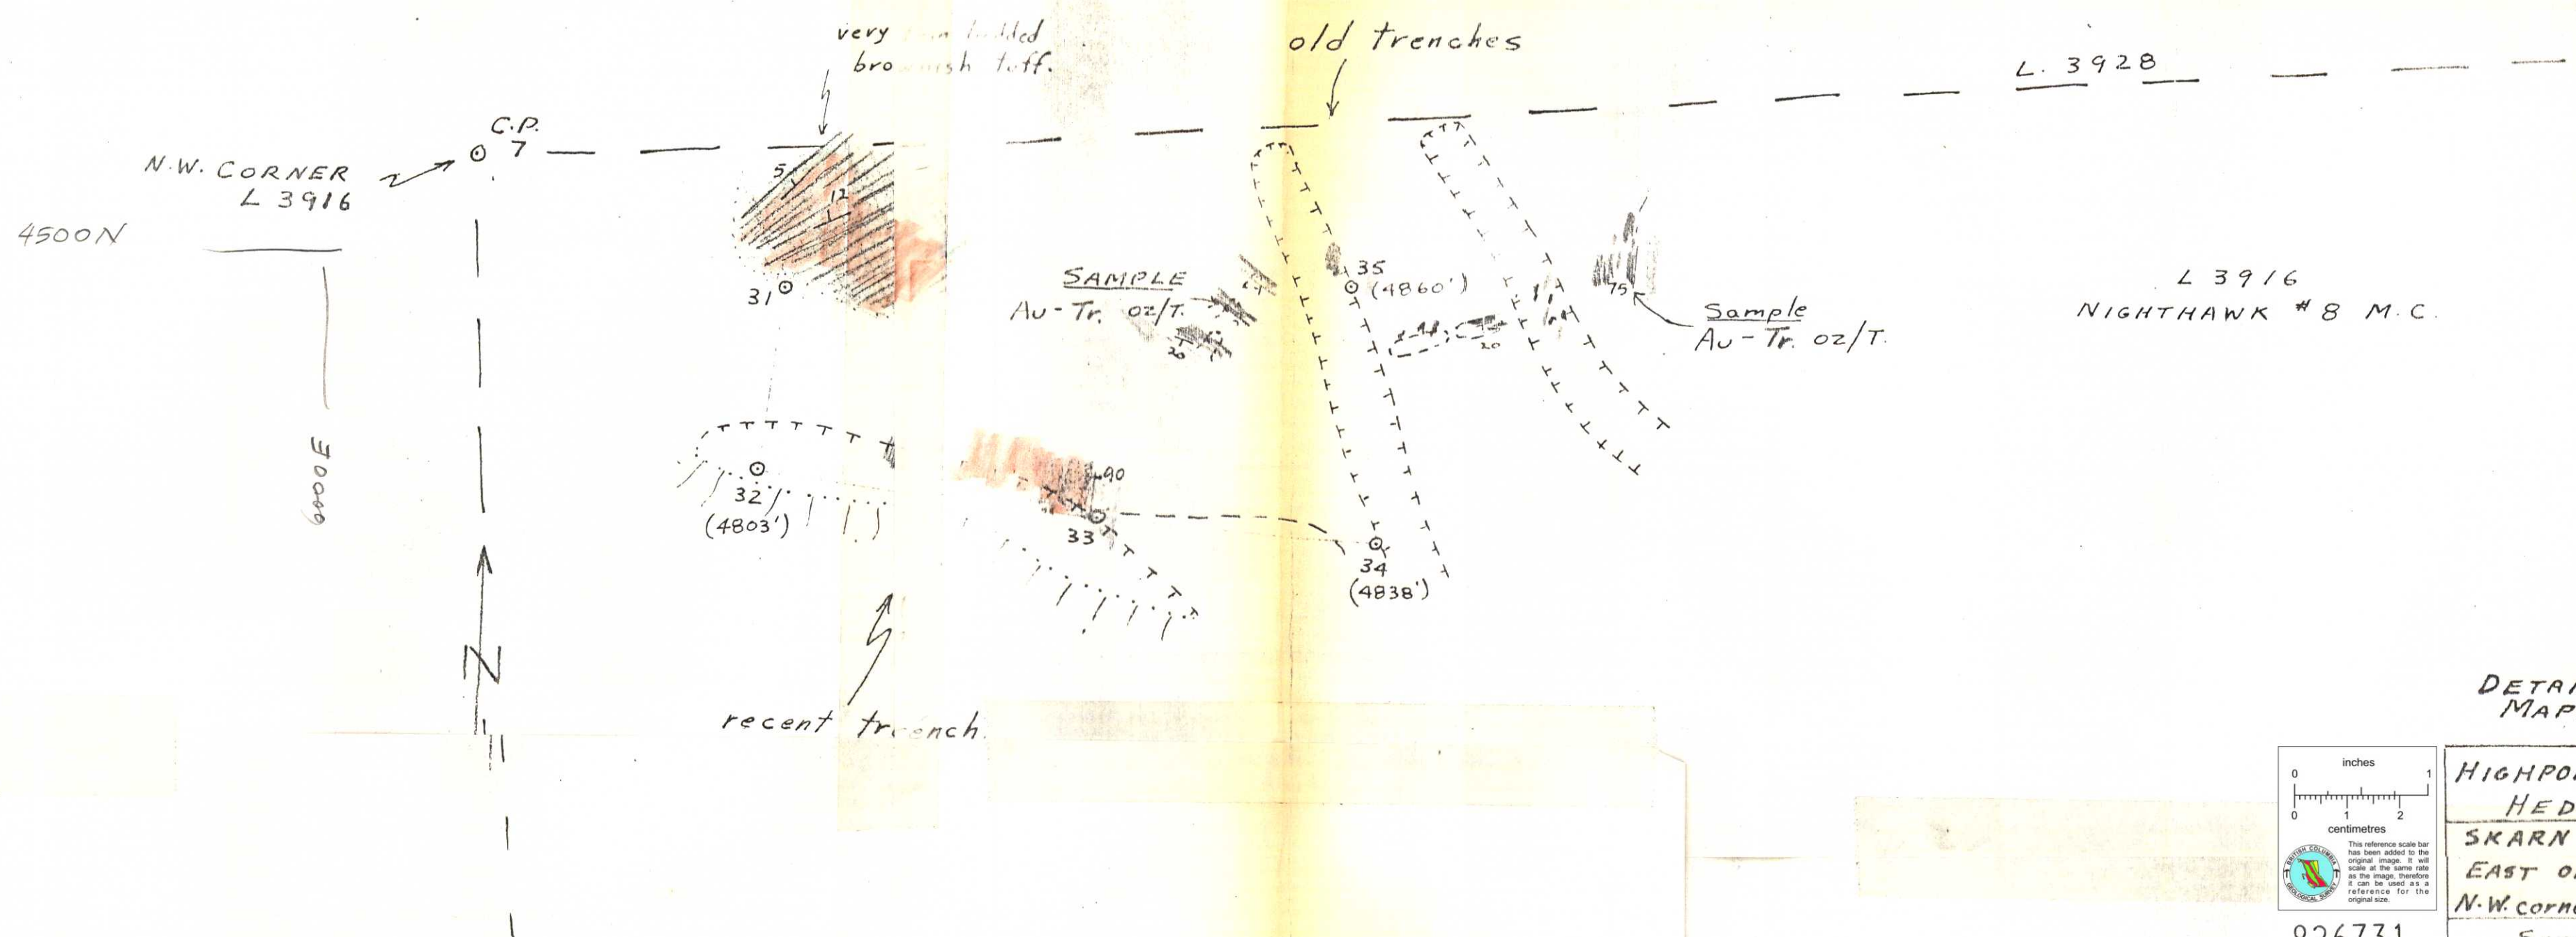 very bedded
brownish tuff.
old trenches
L. 3928
C.P.
7
N.W. CORNER
L 3916
4500N
5
12
31
SAMPLE
Au-Tr. oz/T.
20
35
(4860')
20
75
Sample
Au-Tr. oz/T.
L 3916
NIGHTHAWK #8 M.C.
6000E
32
(4803')
90
33
34
(4838')
N
recent trench
DETAI
MAP
HIGHPO
HED
SKARN
EAST O
N.W. corn
inches
0 1
0 1 2
centimetres
This reference scale bar
has been added to the
original image. It will
scale at the same rate
as the image, therefore
it can be used as a
reference for the
original size.
BRITISH COLUMBIA
GEOLOGICAL SURVEY